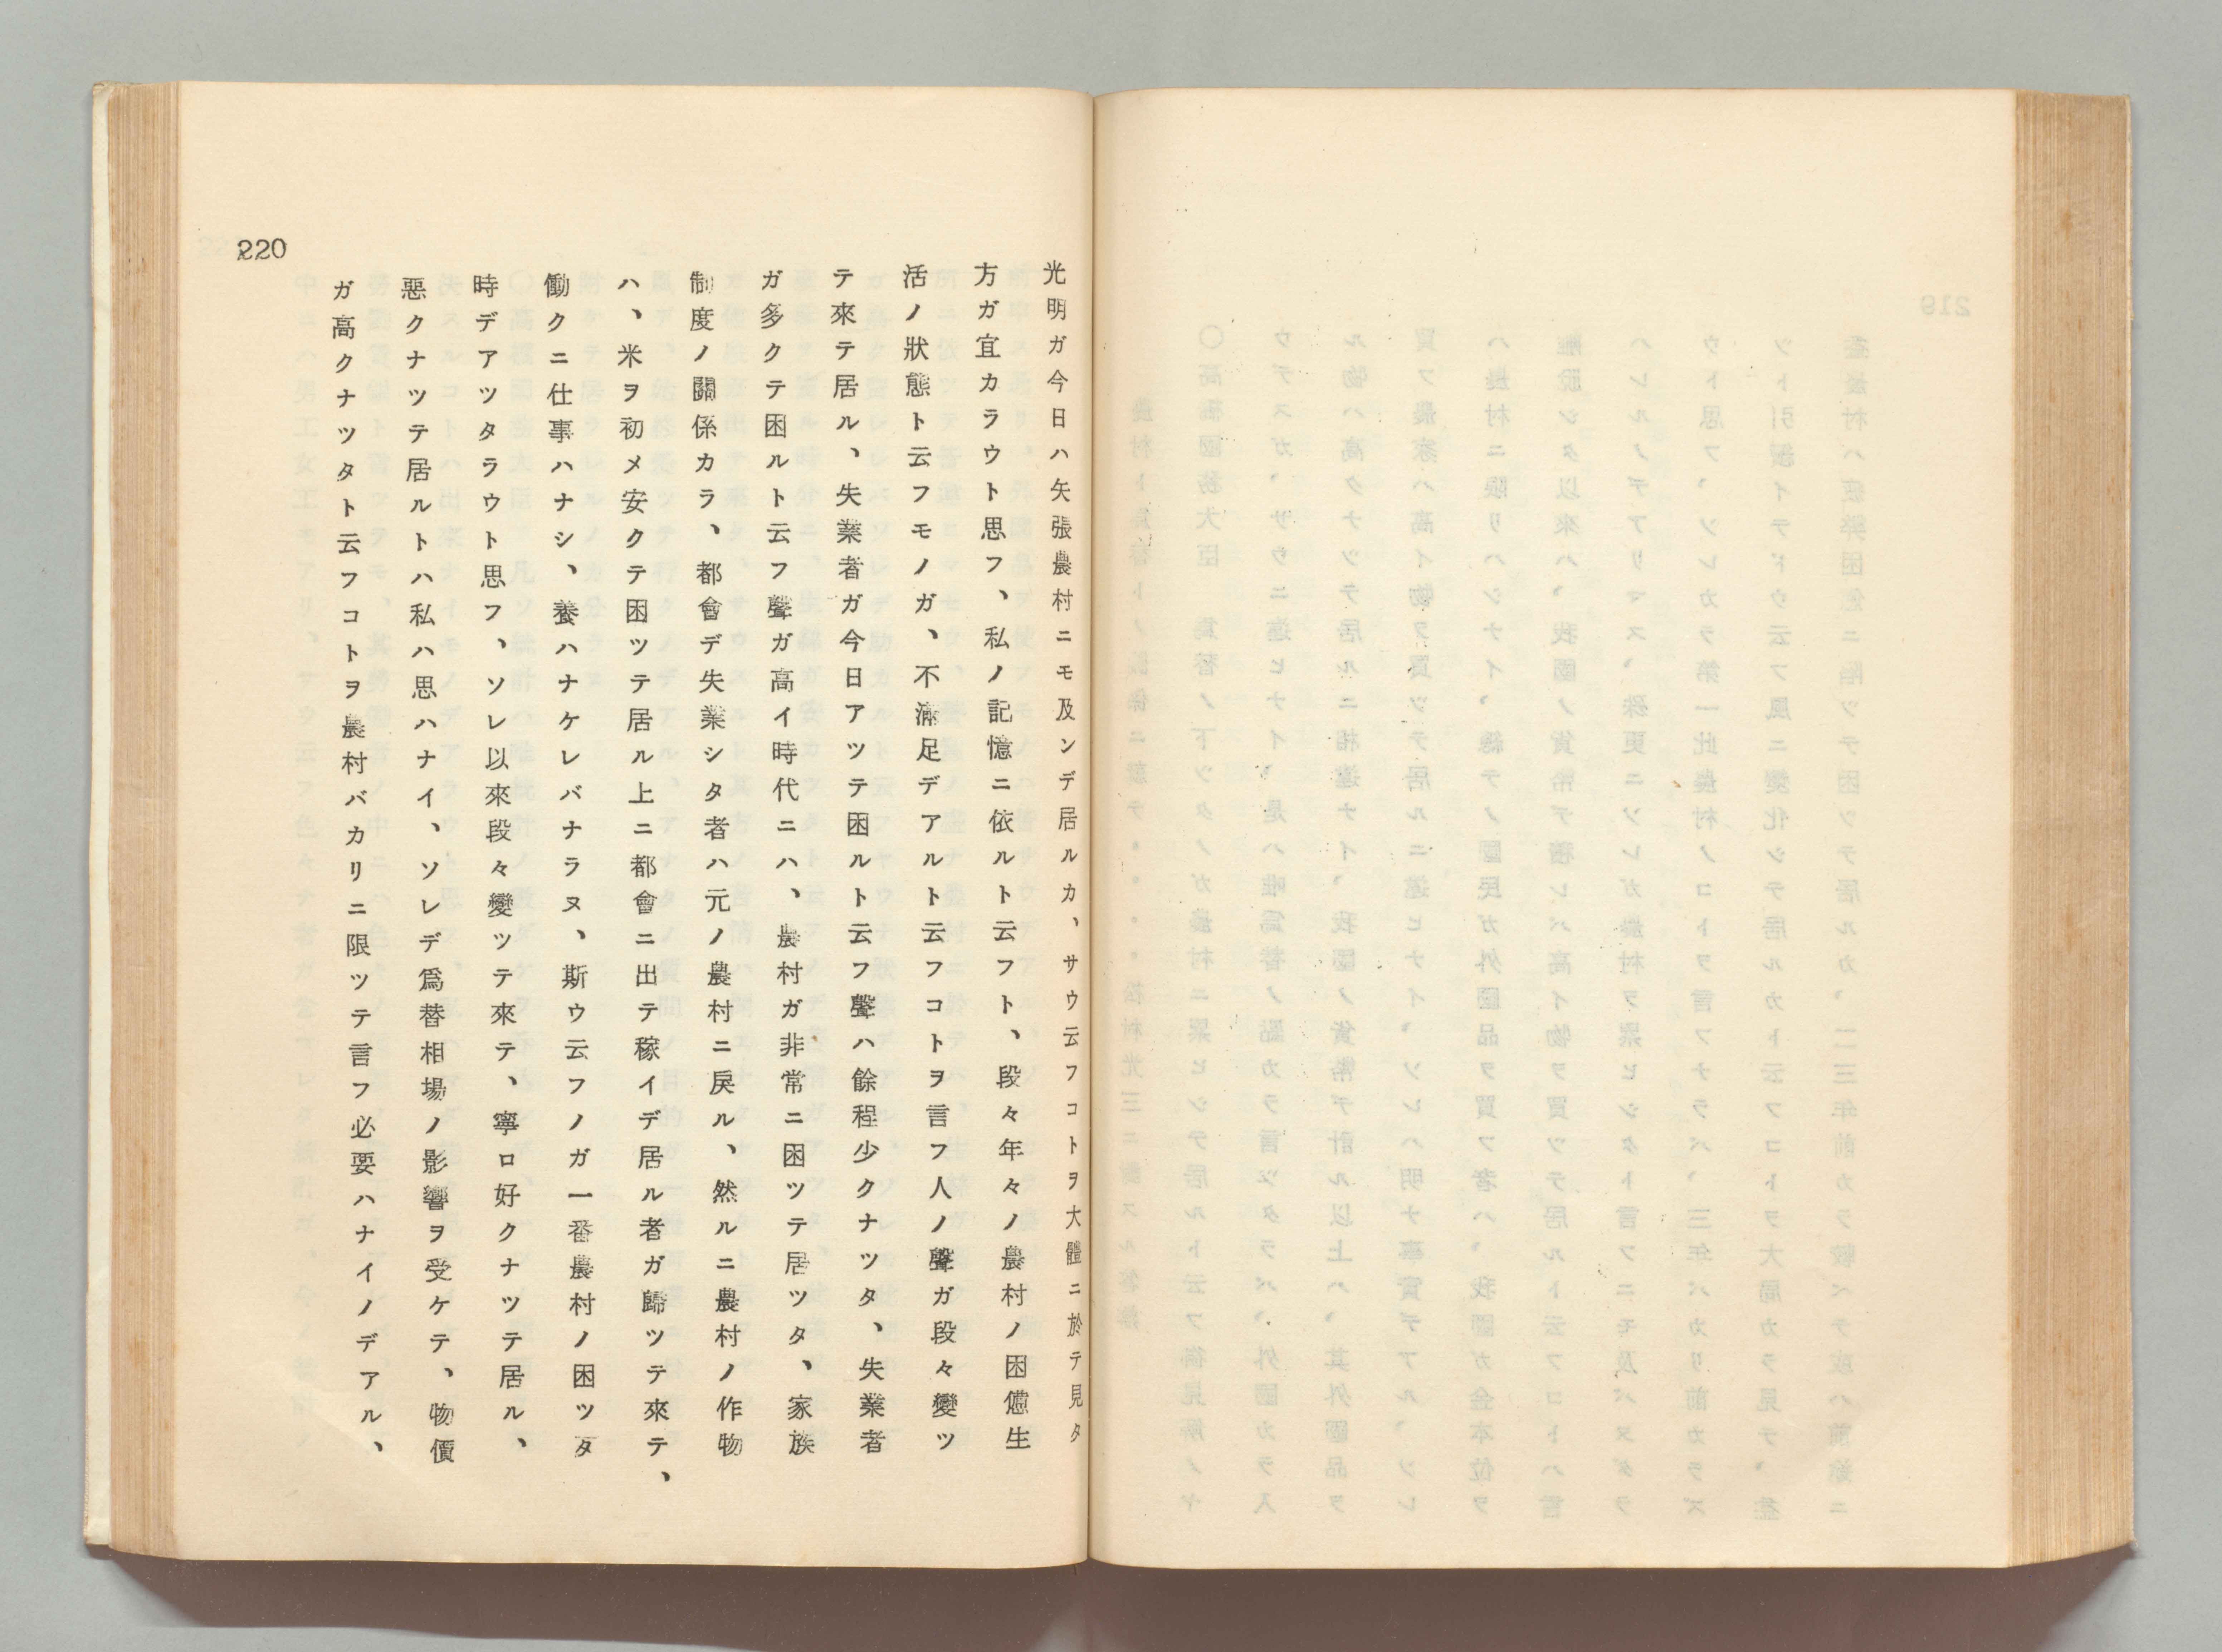 光明ガ今日ハ矢張農村ニモ及ンデ居ルカ、サウ云フコトヲ大體ニ於テ見タ
方ガ宜カラウト思フ、私ノ記憶ニ依ルト云フト、段々年々ノ農村ノ困憊生
活ノ狀態ト云フモノガ、不滿足デアルト云フコトヲ言フ人ノ聲ガ段々變ツ
テ來テ居ル、失業者ガ今日アツテ困ルト云フ聲ハ餘程少クナツタ、失業者
ガ多クテ困ルト云フ聲ガ高イ時代ニハ、農村ガ非常ニ困ツテ居ツタ、家族
制度ノ關係カラ、都會デ失業シタ者ハ元ノ農村ニ戾ル、然ルニ農村ノ作物
ハ、米ヲ初メ安クテ困ツテ居ル上ニ都會ニ出テ稼イデ居ル者ガ歸ツテ來テ、
働クニ仕事ハナシ、養ハナケレバナラヌ、斯ウ云フノガ一番農村ノ困ツタ
時デアツタラウト思フ、ソレ以來段々變ツテ來テ、寧ロ好クナツテ居ル、
惡クナツテ居ルトハ私ハ思ハナイ、ソレデ爲替相場ノ影響ヲ受ケテ、物價
ガ高クナツタト云フコトヲ農村バカリニ限ツテ言フ必要ハナイノデアル、
220